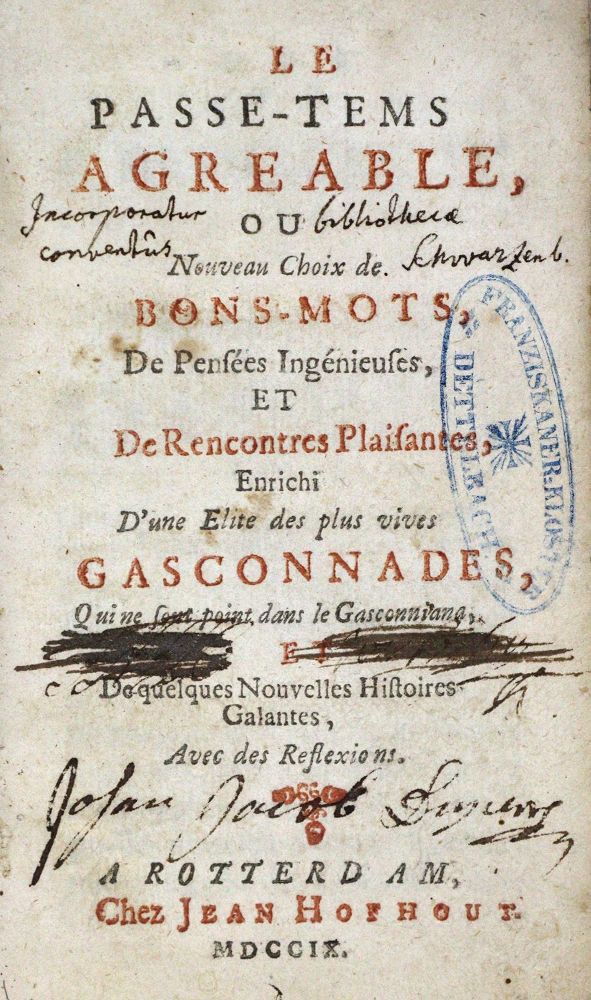 LE
PASSE-TEMS
AGREABLE,
OU
Incorporatur bibliothecæ
conventûs Schwarzenb.
Nouveau Choix de
BONS-MOTS,
De Pensées Ingénieuses,
ET
De Rencontres Plaisantes,
Enrichi
D'une Elite des plus vives
GASCONNADES,
Qui ne sont point dans le Gasconniana,
ET
De quelques Nouvelles Histoires
Galantes,
Avec des Reflexions.
Johan Jacob
A ROTTERDAM,
Chez JEAN HOFHOUT.
MDCCIX.
FRANZISKANER-KLOSTER
DETTELBACH